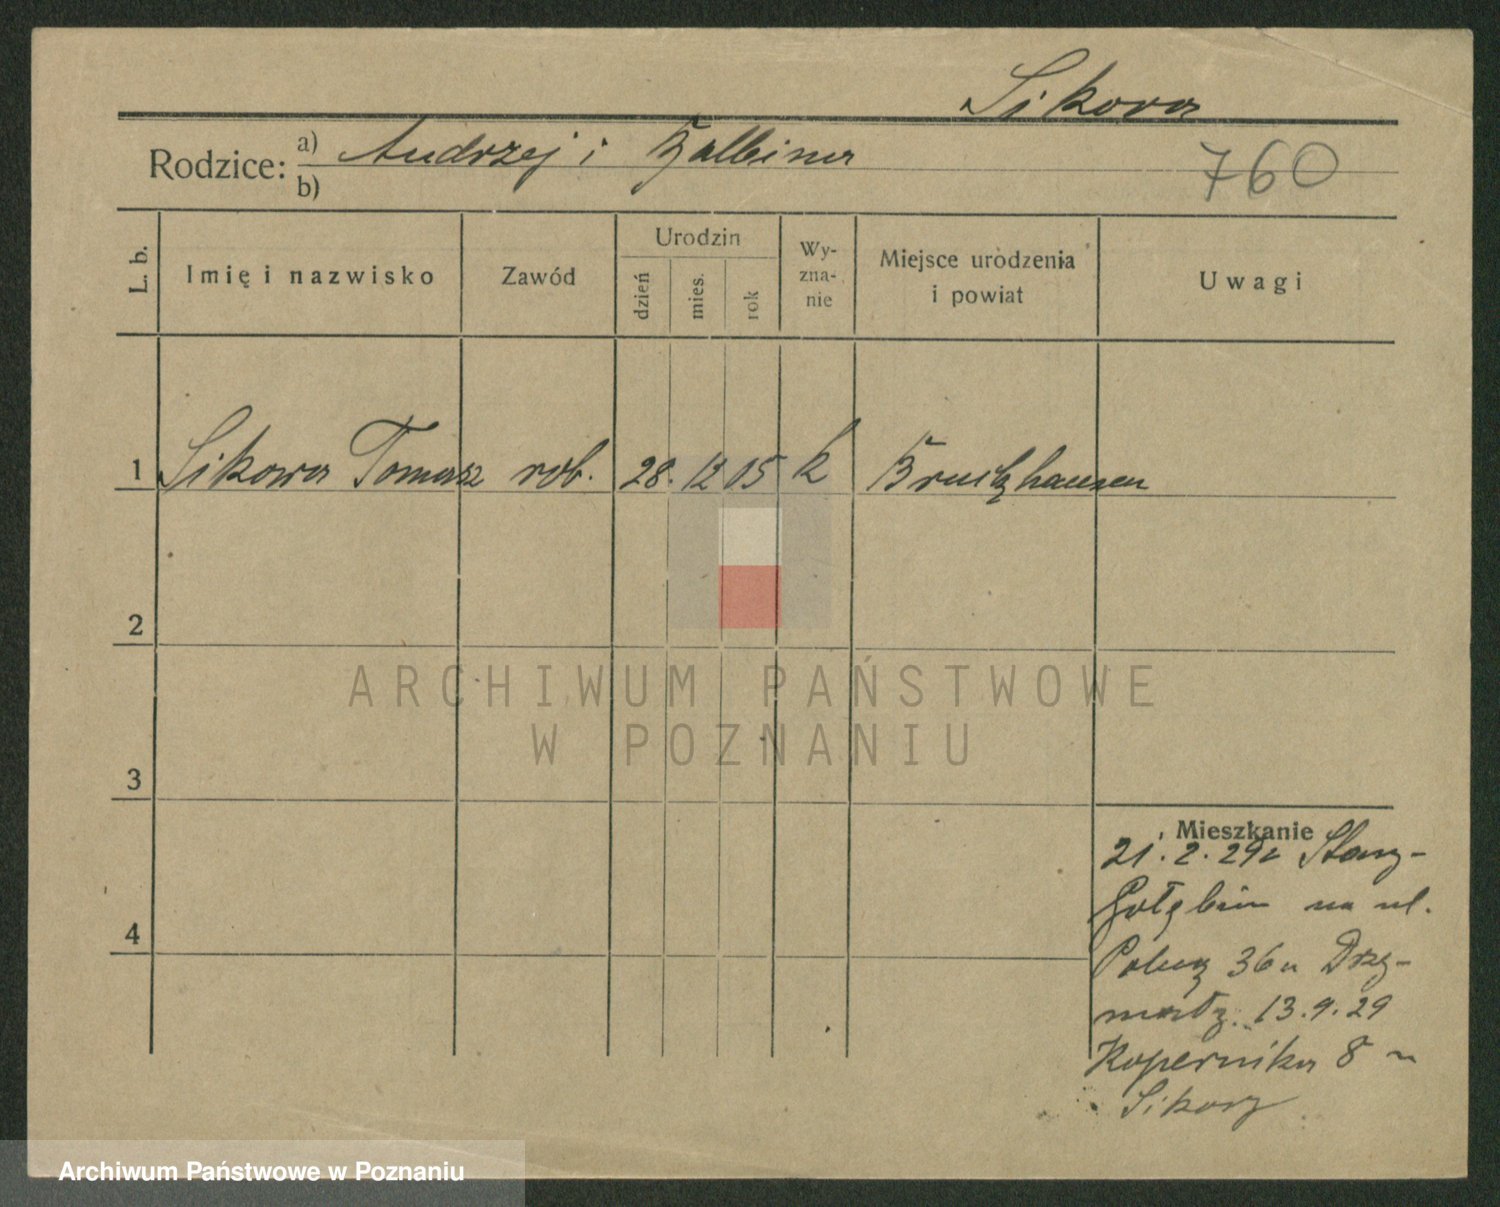 Sikora
Rodzice: a) Andrzej i Balbina
b)
760
L. b.
Imię i nazwisko
Zawód
Urodzin
dzień
mies.
rok
Wy-
zna-
nie
Miejsce urodzenia
i powiat
Uwagi
1 Sikora Tomasz rob. 28. 12 05 k
2
3
4
Mieszkanie
21. 2. 29 z Stary-
Gołębin na ul.
36 u Drzy-
13. 9. 29
Kopernika 8 u
Sikory
ARCHIWUM PAŃSTWOWE
W POZNANIU
Archiwum Państwowe w Poznaniu